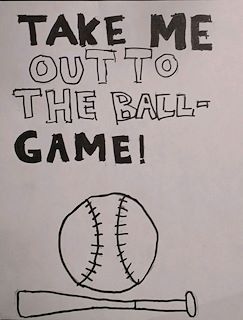 TAKE ME
OUT TO
THE BALL-
GAME!